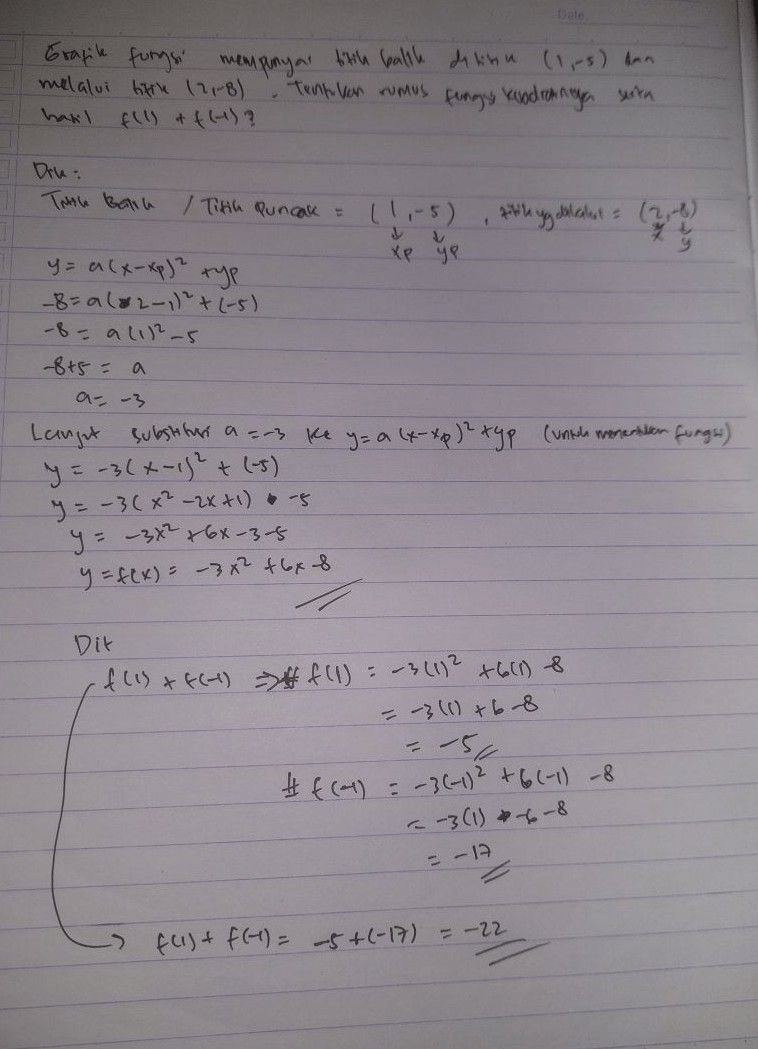 Date
Grafik fungsi mempunyai titik balik di titik (1,-5) dan
melalui titik (2,-8). Tentukan rumus fungsi kuadratnya serta
hasil f(1) + f(-1)?
Dik:
Titik Balik / Titik Puncak = (1,-5), titik yg dilalui = (2,-8)
↓ ↓ ↓ ↓
xp yp x y
y = a(x-xp)² + yp
-8 = a(2-1)² + (-5)
-8 = a(1)² -5
-8+5 = a
a = -3
Lanjut substitusi a = -3 ke y = a(x-xp)² + yp (untuk menentukan fungsi)
y = -3(x-1)² + (-5)
y = -3(x² -2x+1) -5
y = -3x² +6x -3-5
y = f(x) = -3x² +6x -8
Dit
f(1) + f(-1) ⇒ # f(1) = -3(1)² +6(1) -8
= -3(1) +6 -8
= -5
# f(-1) = -3(-1)² +6(-1) -8
= -3(1) -6 -8
= -17
→ f(1) + f(-1) = -5+(-17) = -22